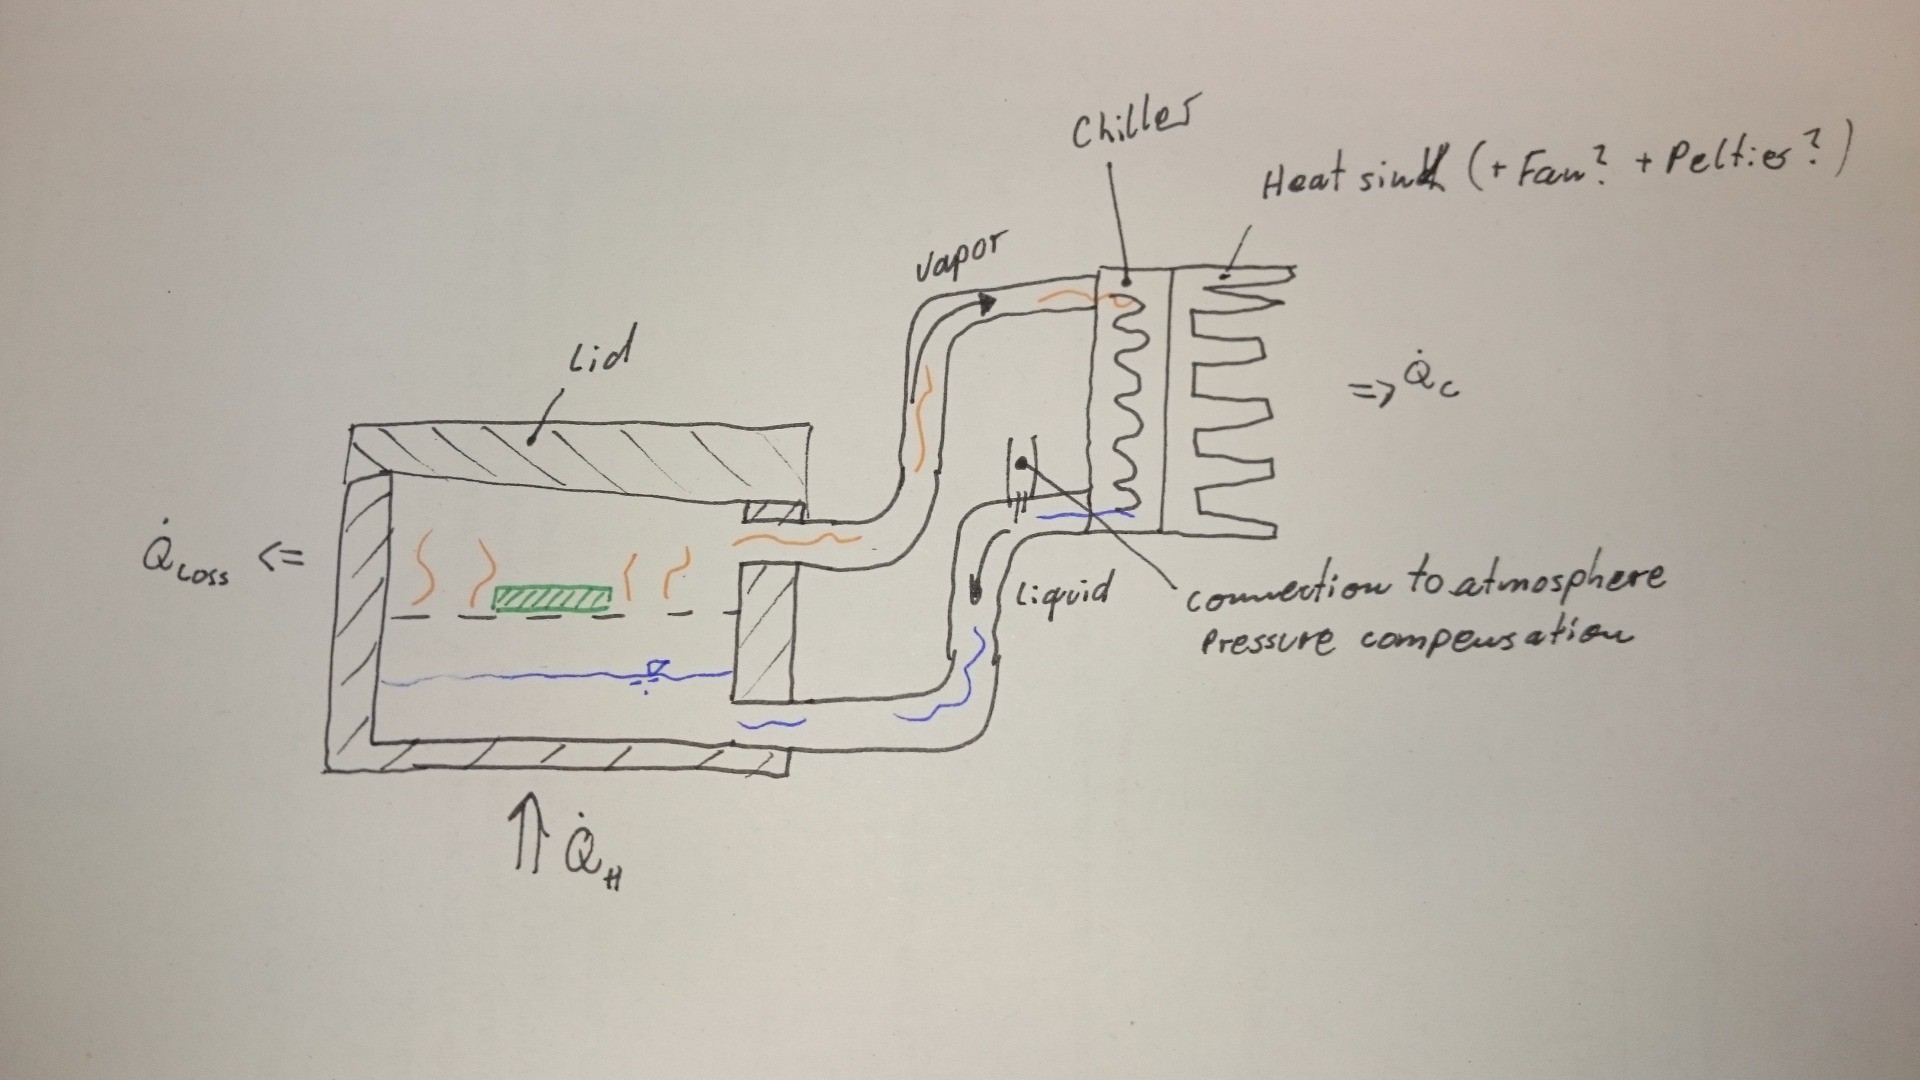 Chiller
Heat sink (+ Fan? + Peltier?)
Vapor
Lid
=> Q̇c
Q̇Loss <=
Liquid
Connection to atmosphere
Pressure compensation
Q̇H